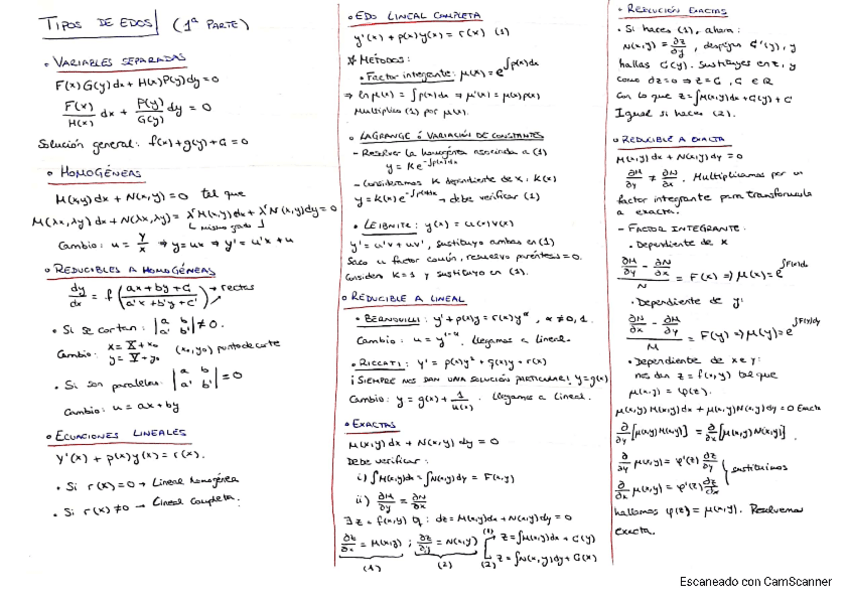 TIPOS DE EDOS (1ª PARTE)
• VARIABLES SEPARADAS
F(x)G(y)dx + H(x)P(y)dy = 0
F(x)/H(x) dx + P(y)/G(y) dy = 0
Solución general: f(x)+g(y)+C = 0
• HOMOGÉNEAS
M(x,y)dx + N(x,y) = 0 tal que
M(λx,λy)dx + N(λx,λy) = λʳM(x,y)dx + λʳN(x,y)dy = 0
mismo grado
Cambio: u = y/x ⇒ y = ux ⇒ y' = u'x + u
• REDUCIBLES A HOMOGÉNEAS
dy/dx = f((ax+by+c)/(a'x+b'y+c')) → rectas
• Si se cortan: |a b; a' b'| ≠ 0.
Cambio: x = X + x₀ y = Y + y₀ (x₀,y₀) punto de corte
• Si son paralelas: |a b; a' b'| = 0
Cambio: u = ax+by
• ECUACIONES LINEALES
y'(x) + p(x)y(x) = r(x).
• Si r(x) = 0 → Lineal homogénea
• Si r(x) ≠ 0 → Lineal completa.
• EDO LINEAL COMPLETA
y'(x) + p(x)y(x) = r(x) (1)
* Métodos:
• Factor integrante: μ(x) = e^∫p(x)dx
⇒ ln μ(x) = ∫p(x)dx ⇒ μ'(x) = μ(x)p(x)
Multiplico (1) por μ(x).
• LAGRANGE Ó VARIACIÓN DE CONSTANTES
- Resolver la homogénea asociada a (1)
y = K e^-∫p(x)dx
- Consideramos K dependiente de x: K(x)
y = K(x) e^-∫p(x)dx → debe verificar (1)
• LEIBNITZ: y(x) = u(x)v(x)
y' = u'v + uv', sustituyo ambas en (1)
Saco u factor común, resuelvo paréntesis = 0.
Considero K=1 y sustituyo en (1).
• REDUCIBLE A LINEAL
• BERNOUILLI: y' + p(x)y = r(x)y^α, α ≠ 0,1.
Cambio: u = y^1-α. Llegamos a lineal.
• RICCATI: y' = p(x)y² + q(x)y + r(x)
¡SIEMPRE NOS DAN UNA SOLUCIÓN PARTICULAR! y = g(x)
Cambio: y = g(x) + 1/u(x). Llegamos a lineal.
• EXACTAS
M(x,y)dx + N(x,y)dy = 0
Debe verificar:
i) ∫M(x,y)dx = ∫N(x,y)dy = F(x,y)
ii) ∂M/∂y = ∂N/∂x
∃ z = f(x,y) q: dz = M(x,y)dx + N(x,y)dy = 0
∂z/∂x = M(x,y) ; ∂z/∂y = N(x,y) (1) z = ∫M(x,y)dx + C(y)
(1) (2) (2) z = ∫N(x,y)dy + C(x)
• RESOLUCIÓN EXACTAS
• Si haces (1), ahora:
N(x,y) = ∂z/∂y, despejas C'(y), y
hallas C(y). Sustituyes en z, y
como dz = 0 ⇒ z = C, C ∈ R
Con lo que z = ∫M(x,y)dx + C(y) + C
Igual si haces (2).
• REDUCIBLE A EXACTA
M(x,y)dx + N(x,y)dy = 0
∂M/∂y ≠ ∂N/∂x. Multiplicamos por un
factor integrante para transformarla
a exacta.
- FACTOR INTEGRANTE.
• Dependiente de x
(∂M/∂y - ∂N/∂x)/N = F(x) ⇒ μ(x) = e^∫F(x)dx
• Dependiente de y:
(∂N/∂x - ∂M/∂y)/M = F(y) ⇒ μ(y) = e^∫F(y)dy
• Dependiente de x e y:
nos dan z = f(x,y) tal que
μ(x,y) = φ(z).
μ(x,y)M(x,y)dx + μ(x,y)N(x,y)dy = 0 Exacta
∂/∂y[μ(x,y)M(x,y)] = ∂/∂x[μ(x,y)N(x,y)].
∂/∂y μ(x,y) = φ'(z) ∂z/∂y
sustituimos
∂/∂x μ(x,y) = φ'(z) ∂z/∂x
hallamos φ(z) = μ(x,y). Resolvemos
exacta.
Escaneado con CamScanner